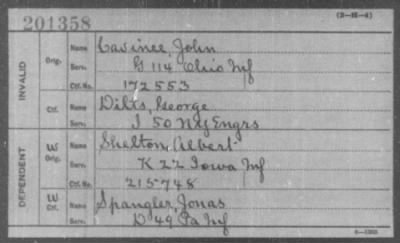 201358 (3-35-4)
INVALID
Orig. Name Cavinee, John
Serv. G 114 Ohio Inf
Ctf. No. 172553
Ctf. Name Dilts, George
Serv. I 50 NY Engrs
DEPENDENT
W Orig. Name Shelton, Albert
Serv. K 22 Iowa Inf
Ctf. No. 215748
W Ctf. Name Spangler, Jonas
Serv. D 49 Pa Inf